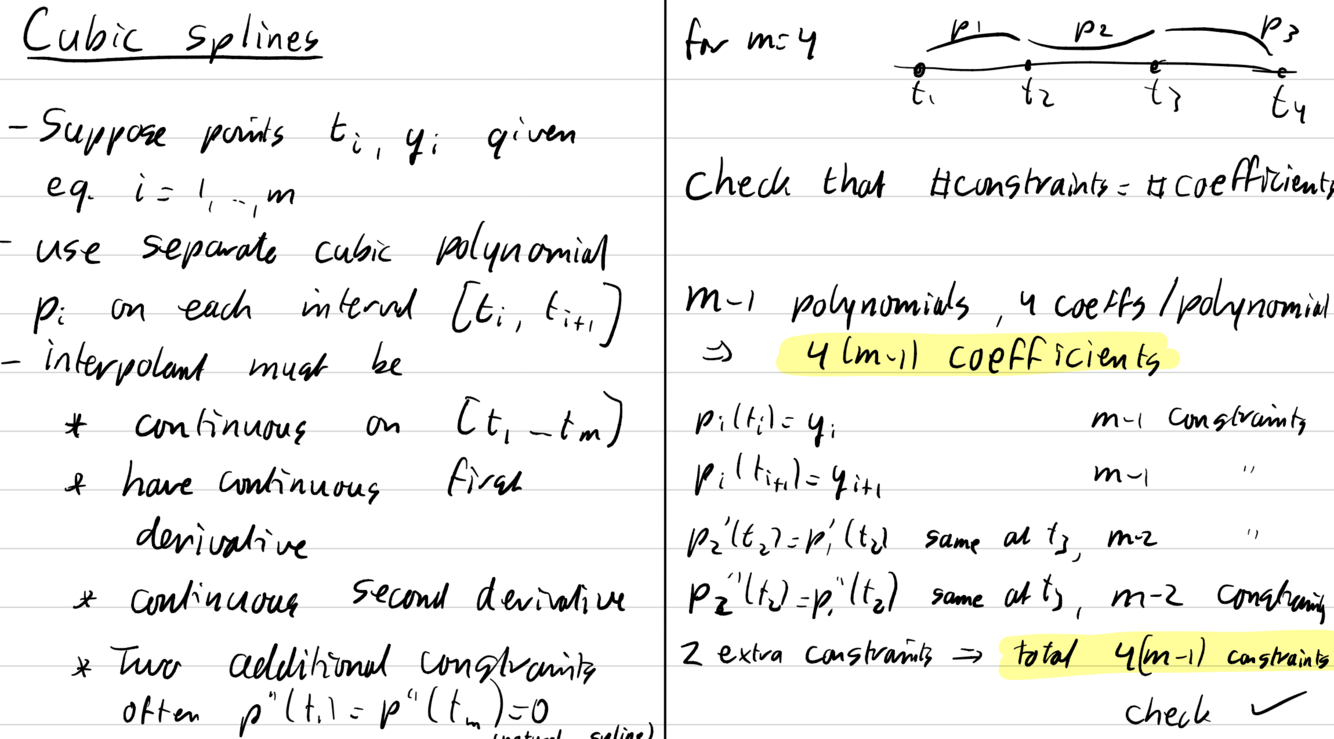 Cubic splines
- Suppose points tᵢ, yᵢ given
eq. i = 1, .., m
- use separate cubic polynomial
pᵢ on each interval [tᵢ, tᵢ₊₁]
- interpolant must be
* continuous on [t₁ - tₘ]
* have continuous first
derivative
* continuous second derivative
* Two additional constraints
often p''(t₁) = p''(tₘ) = 0
(natural spline)
for m=4
p1 p2 p3
t₁ t₂ t₃ t₄
Check that #constraints = # coefficients
m-1 polynomials, 4 coeffs/polynomial
⇒ 4(m-1) coefficients
pᵢ(tᵢ) = yᵢ m-1 constraints
pᵢ(tᵢ₊₁) = yᵢ₊₁ m-1 "
p₂'(t₂) = p₁'(t₂) same at t₃, m-2 "
p₂''(t₂) = p₁''(t₂) same at t₃, m-2 constraints
2 extra constraints ⇒ total 4(m-1) constraints
check ✓